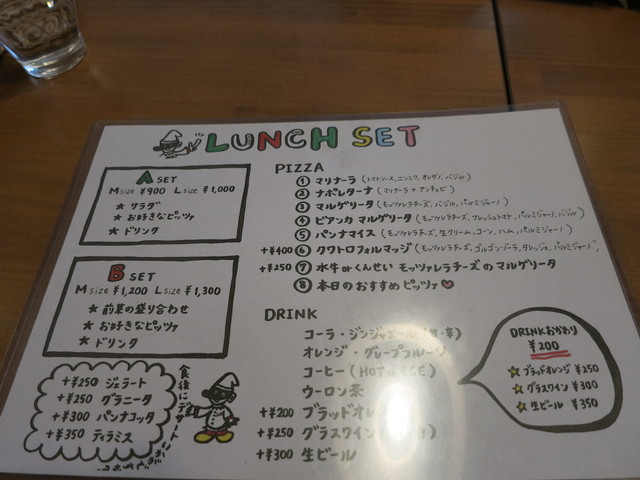 LUNCH SET
A SET
M size ¥900 L size ¥1,000
★ サラダ
★ お好きなピッツァ
★ ドリンク
B SET
M size ¥1,200 L size ¥1,300
★ 前菜の盛り合わせ
★ お好きなピッツァ
★ ドリンク
+¥250 ジェラート
+¥250 グラニータ
+¥300 パンナコッタ
+¥350 ティラミス
食後にデザート
PIZZA
① マリナーラ (トマトソース、ニンニク、オレガノ、バジル)
② ナポレターナ (マリナーラ + アンチョビ)
③ マルゲリータ (モッツァレラチーズ、バジル、パルミジャーノ)
④ ビアンカ マルゲリータ (モッツァレラチーズ、フレッシュトマト、パルミジャーノ、バジル)
⑤ パンナマイス (モッツァレラチーズ、生クリーム、コーン、ハム、パルミジャーノ)
+¥400 ⑥ クワトロフォルマッジ (モッツァレラチーズ、ゴルゴンゾーラ、タレッジョ、パルミジャーノ)
+¥250 ⑦ 水牛orくんせい モッツァレラチーズのマルゲリータ
⑧ 本日のおすすめピッツァ♥
DRINK
コーラ・ジンジャエール
オレンジ・グレープフルーツ
コーヒー (HOT or ICE)
ウーロン茶
+¥200 ブラッドオレンジ
+¥250 グラスワイン
+¥300 生ビール
DRINKおかわり
¥200
☆ ブラッドオレンジ ¥250
☆ グラスワイン ¥300
☆ 生ビール ¥350